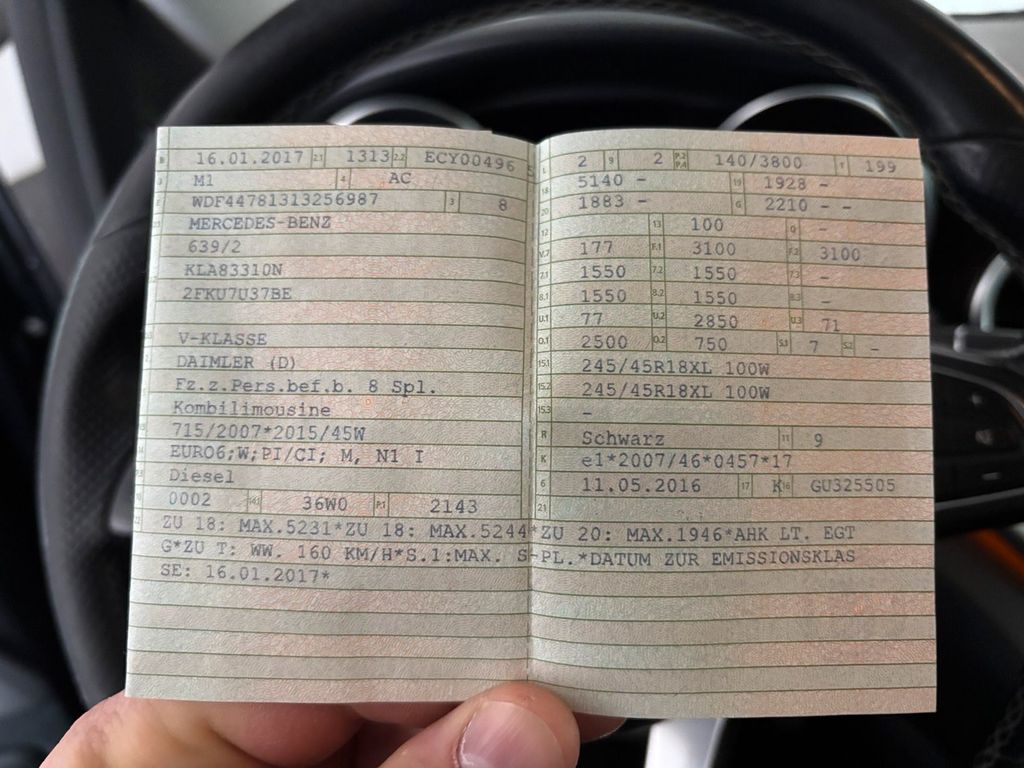 B 16.01.2017 2.1 1313 2.2 ECY00496
J M1 4 AC
E WDF44781313256987 3 8
MERCEDES-BENZ
639/2
KLA83310N
2FKU7U37BE
V-KLASSE
DAIMLER (D)
Fz.z.Pers.bef.b. 8 Spl.
Kombilimousine
715/2007*2015/45W
EURO6;W;PI/CI; M, N1 I
Diesel
0002 14.1 36W0 P.1 2143
L 2 9 2 P.2 P.4 140/3800 T 199
18 5140 - 19 1928 -
20 1883 - G 2210 - -
12 13 100 Q -
V.7 177 F.1 3100 F.2 3100
7.1 1550 7.2 1550 7.3 -
8.1 1550 8.2 1550 8.3 -
U.1 77 U.2 2850 U.3 71
O.1 2500 O.2 750 S.1 7 S.2 -
15.1 245/45R18XL 100W
15.2 245/45R18XL 100W
15.3 -
R Schwarz 11 9
K e1*2007/46*0457*17
6 11.05.2016 17 K 16 GU325505
21
ZU 18: MAX.5231*ZU 18: MAX.5244*ZU 20: MAX.1946*AHK LT. EGT
G*ZU T: WW. 160 KM/H*S.1:MAX. S-PL.*DATUM ZUR EMISSIONSKLAS
SE: 16.01.2017*